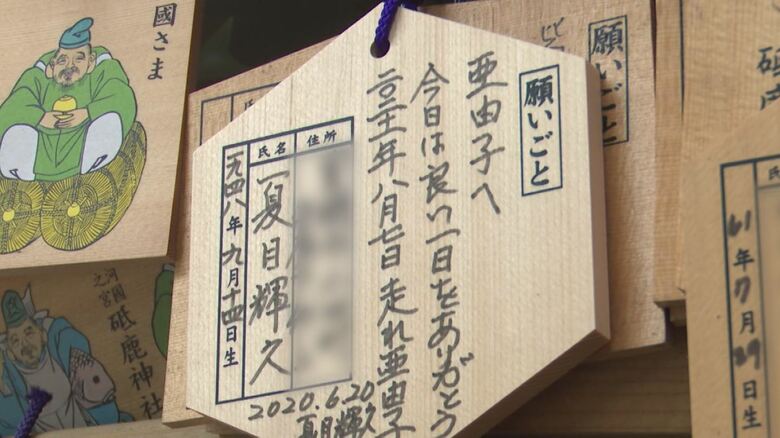 國さま
河國
之宮
砥鹿神社
願いごと
亜由子へ
今日は良い一日をありがとう
二〇二一年八月七日 走れ亜由子
住所
氏名
夏目輝久
一九四八年九月十四日生
2020.6.20
夏目輝久
願いごと
61年7月29日生